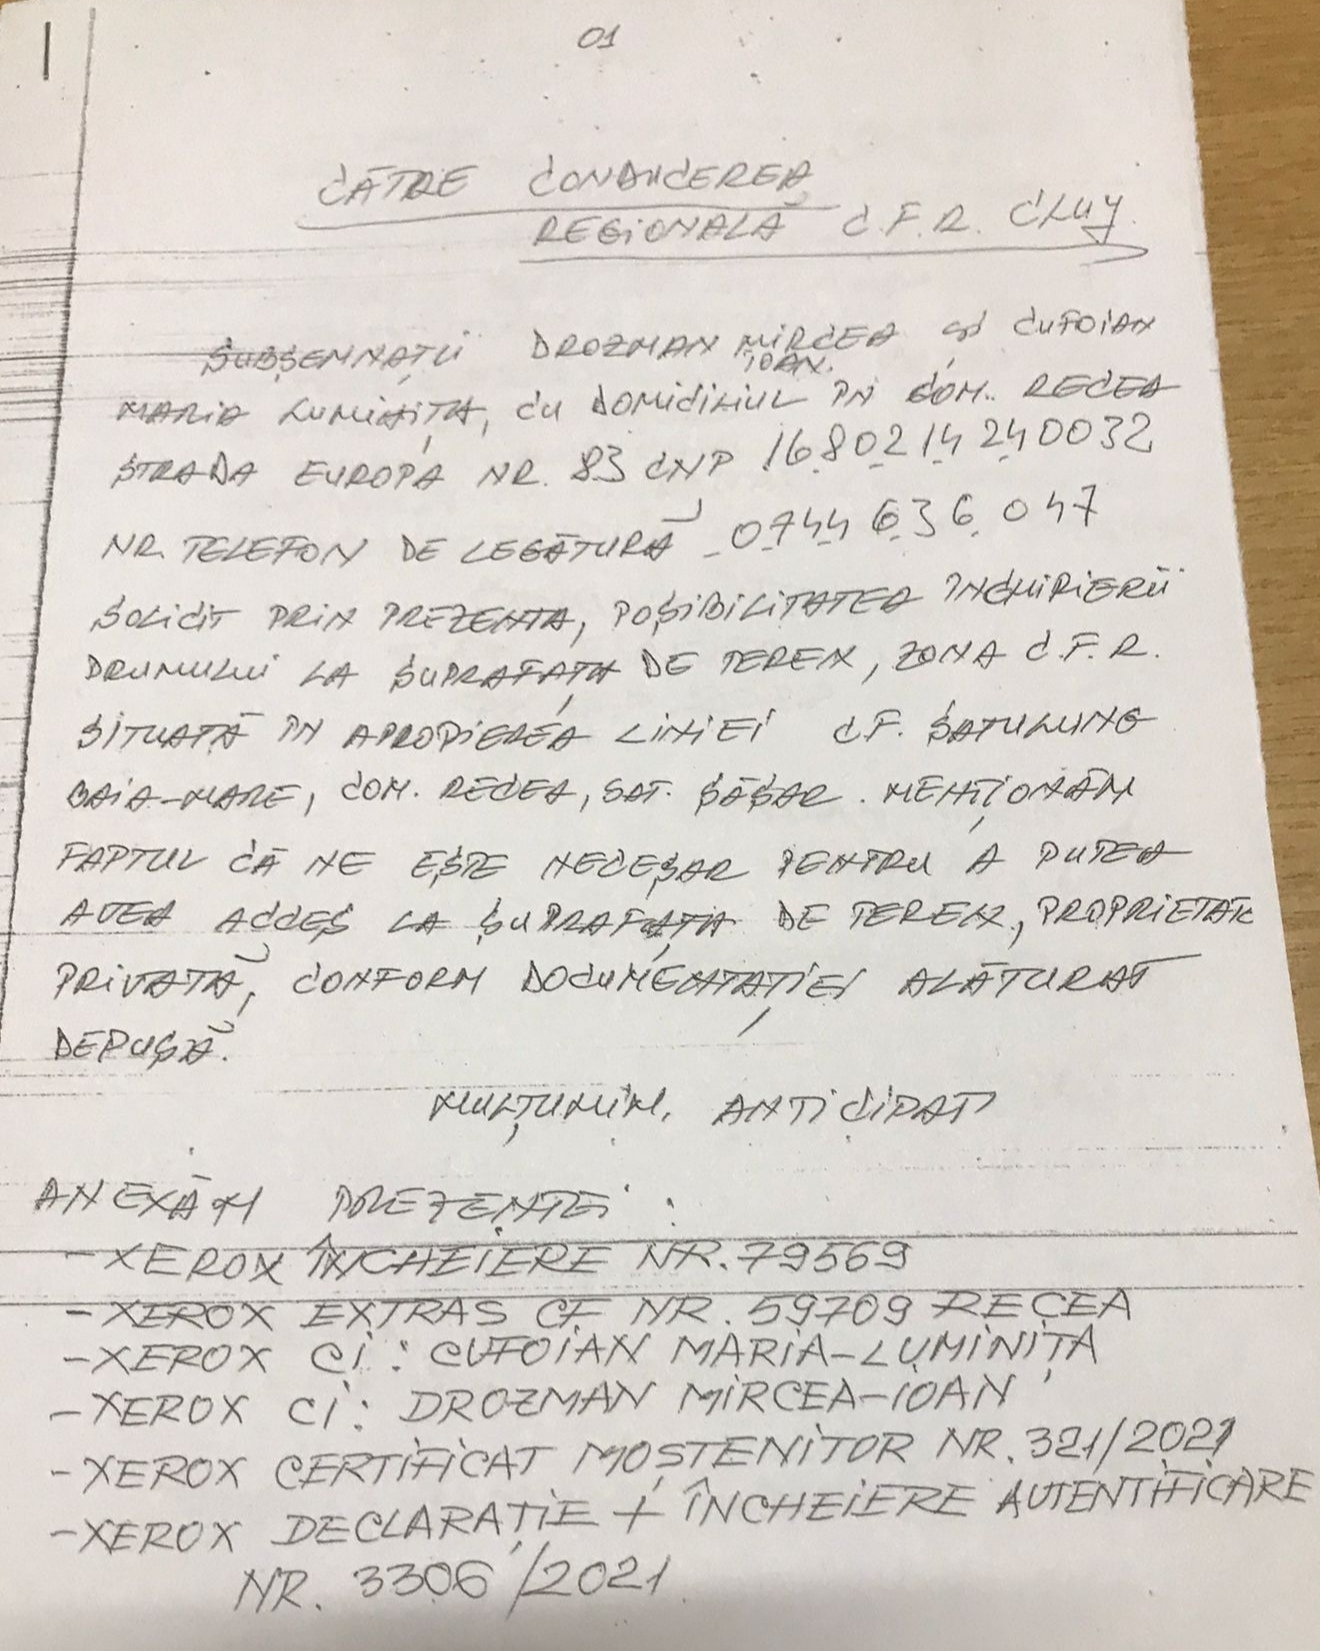 01
CĂTRE CONDUCEREA
REGIONALĂ C.F.R. CLUJ.
SUBSEMNAȚII DROZMAN MIRCEA și CUFOIAN
IOAN.
MARIA LUMINIȚA, CU DOMICILIUL ÎN COM. RECEA
STRADA EUROPA NR. 83 CNP 1680214240032
NR. TELEFON DE LEGĂTURĂ 0744 636 047
SOLICIT PRIN PREZENTA, POSIBILITATEA ÎNCHIRIERII
DRUMULUI LA SUPRAFAȚA DE TEREN, ZONA C.F.R.
SITUATĂ ÎN APROPIEREA LINIEI C.F. SATULUNG
BAIA-MARE, COM. RECEA, SAT. SĂSAR. MENȚIONĂM
FAPTUL CĂ NE ESTE NECESAR PENTRU A PUTEA
AVEA ACCES LA SUPRAFAȚA DE TEREN, PROPRIETATE
PRIVATĂ, CONFORM DOCUMENTAȚIEI ALĂTURAT
DEPUSĂ.
MULȚUMIM. ANTICIPAT
ANEXĂM PREZENTEI :
- XEROX ÎNCHEIERE NR. 79569
- XEROX EXTRAS CF NR. 59709 RECEA
- XEROX CI : CUFOIAN MARIA-LUMINIȚA
- XEROX CI : DROZMAN MIRCEA-IOAN
- XEROX CERTIFICAT MOȘTENITOR NR. 321/2021
- XEROX DECLARAȚIE + ÎNCHEIERE AUTENTIFICARE
NR. 3306/2021